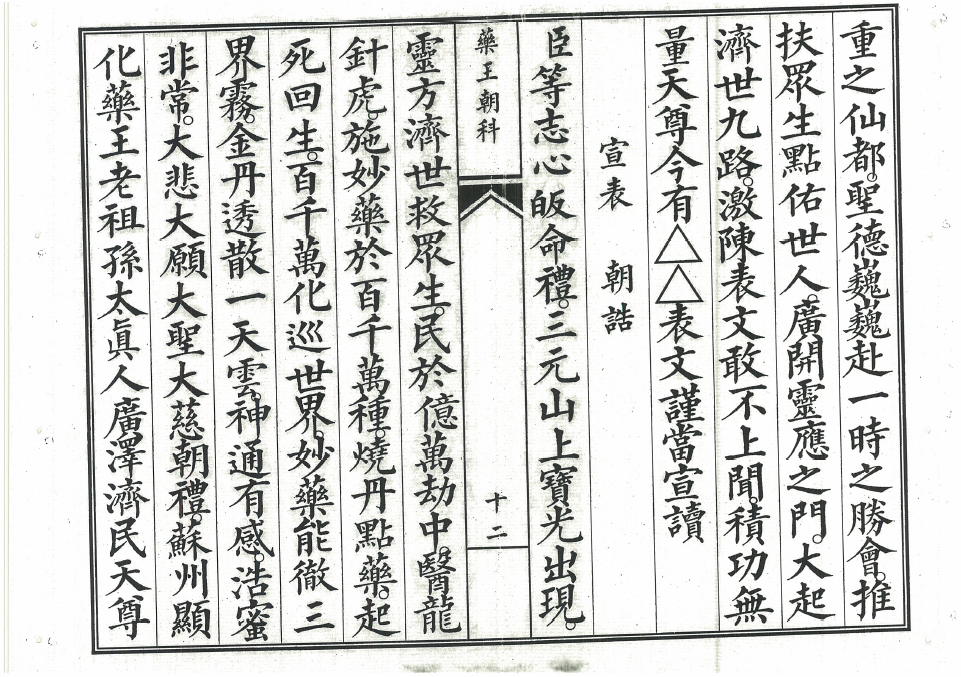 重之仙都。聖德巍巍赴一時之勝會。推
扶眾生點佑世人。廣開靈應之門。大起
濟世九路。激陳表文敢不上聞。積功無
量天尊今有△△表文謹當宣讀
宣表 朝誥
臣等志心皈命禮。三元山上寶光出現。
藥王朝科
十二
靈方濟世救眾生。民於億萬劫中。醫龍
針虎。施妙藥於百千萬種。燒丹點藥。起
死回生。百千萬化巡世界。妙藥能徹三
界霧。金丹透散一天雲。神通有感。浩蜜
非常。大悲大願大聖大慈朝禮。蘇州顯
化藥王老祖孫太眞人廣澤濟民天尊